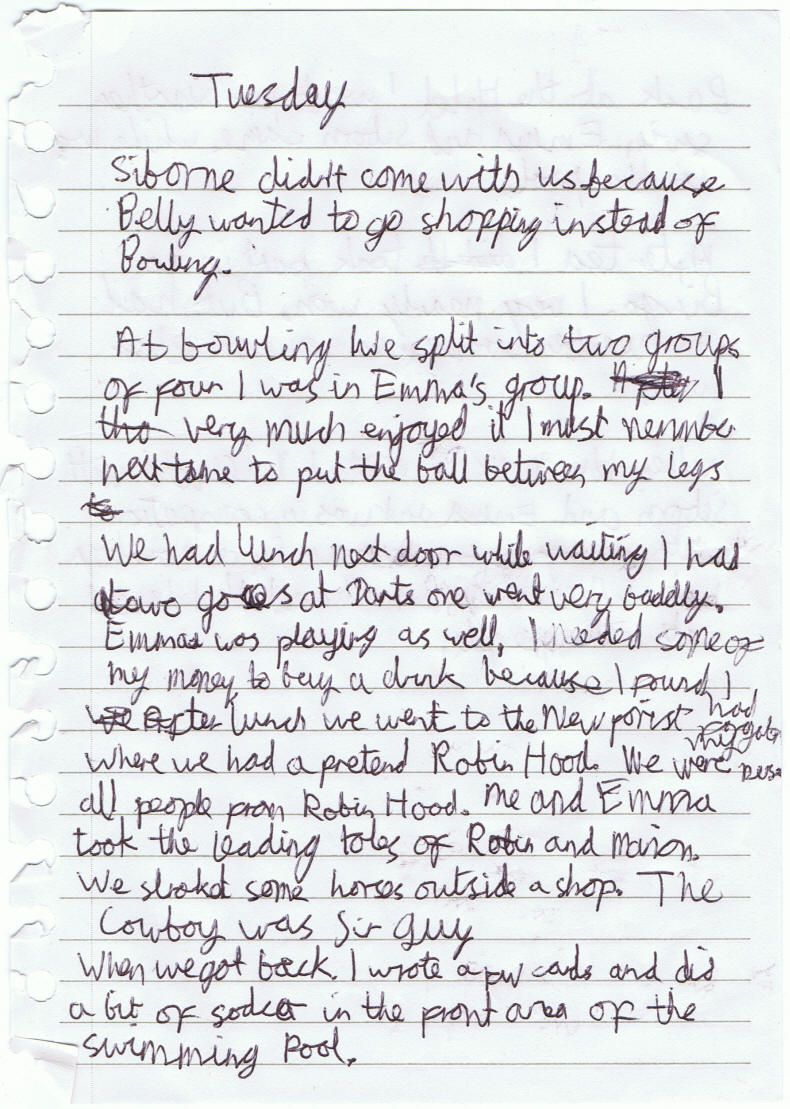 Tuesday
Siborne didn't come with us because
Belly wanted to go shopping instead of
Bowling.
At bowling we split into two groups
of four I was in Emma's group. After I
tho very much enjoyed it I must remmber
next time to put the ball between my legs
to
We had lunch next door while waiting I had
two goes at Darts one went very baddly.
Emma was playing as well, I needed some of
my money to buy a drink because I found I
we After lunch we went to the New forist had
where we had a pretend Robin Hood. We were
all people from Robin Hood. Me and Emma
took the leading roles of Robin and Marion.
We stroked some horses outside a shop. The
Cowboy was Sir Guy
When we got back. I wrote a few cards and did
a bit of socker in the front area of the
swimming Pool.